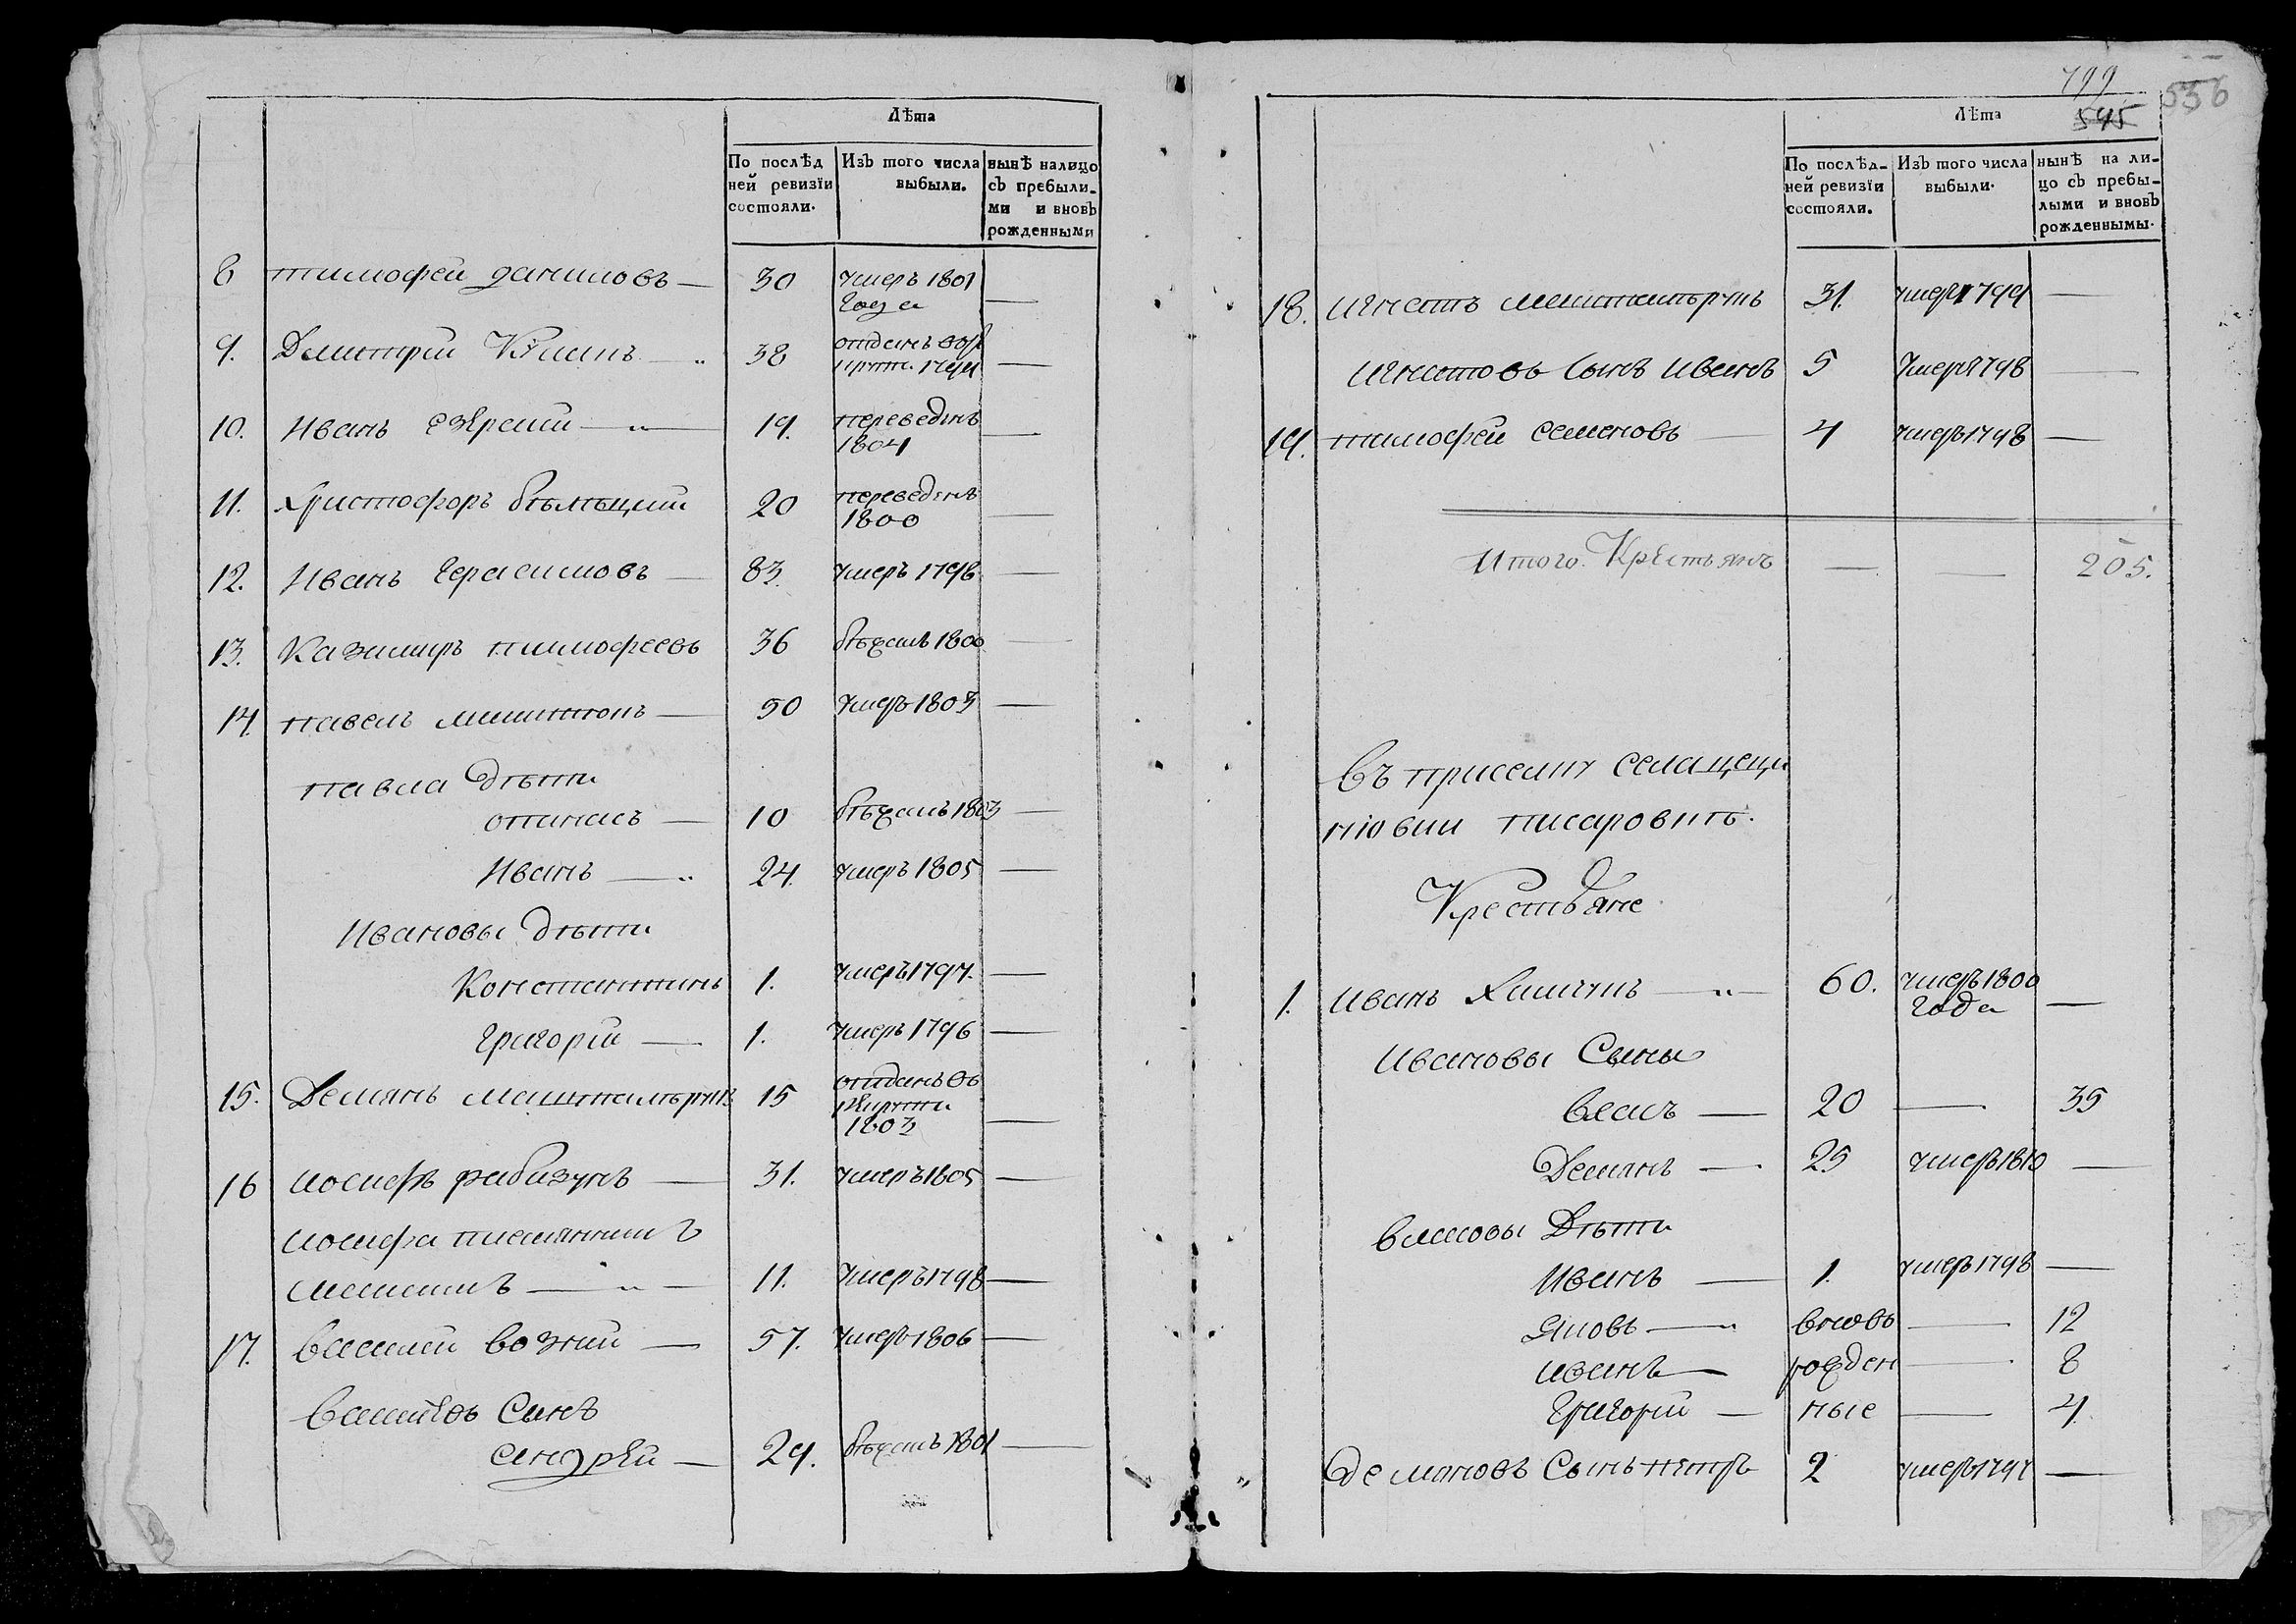 Лѣта
По послѣд
ней ревизїи
состояли.
Изъ того числа
выбыли.
нынѣ налицо
съ пребыли-
ми и вновь
рожденными
8 тимофей даниловъ — 30 умеръ 1801
года —
9. Дмитрий — 38 отданъ в
1799 —
10. Иванъ — 19. переведенъ
1804 —
11. Христофоръ бѣлецкий 20 переведенъ
1800 —
12. Иванъ Герасимовъ — 83. умеръ 1798 —
13. Казимиръ тимофеевъ 36 бѣжалъ 1800 —
14. павелъ — 50 умеръ 1803 —
павла Дѣти
опанасъ — 10 бѣжалъ 1803 —
Иванъ — 24. умеръ 1805 —
Ивановы дѣти
Константинъ 1. умеръ 1797. —
Григорий — 1. умеръ 1796 —
15. Демянъ 15 отданъ въ
рекруты
1803 —
16 иосифъ рабизунъ — 31. умеръ 1805 —
иосифа племянникъ
— 11. умеръ 1798 —
17. василей возний — 57. умеръ 1806 —
Сынъ
андрей — 29. бѣжалъ 1801 —
799
545
556
Лѣта
По послѣд-
ней ревизїи
состояли.
Изъ того числа
выбыли.
нынѣ на ли-
цо съ пребы-
лыми и вновь
рожденнымы.
18. игнатъ 31. умеръ 1799 —
игнатовъ Сынъ иванъ 5 умеръ 1798 —
19. тимофей семеновъ — 4 умеръ 1798 —
Итого Крестьянъ — — 205.
въ приселку села
писаровкѣ.
Крестьяне
1. иванъ — 60. умеръ 1800
года —
ивановы Сыны
власъ — 20 — 35
Демянъ — 25 умеръ 1810 —
власовы Дѣти
Иванъ — 1. умеръ 1798 —
Яковъ — вновь — 12
иванъ — рожден — 8
Григорий — ные — 4.
Демяновъ Сынъ петръ 2 умеръ 1797 —